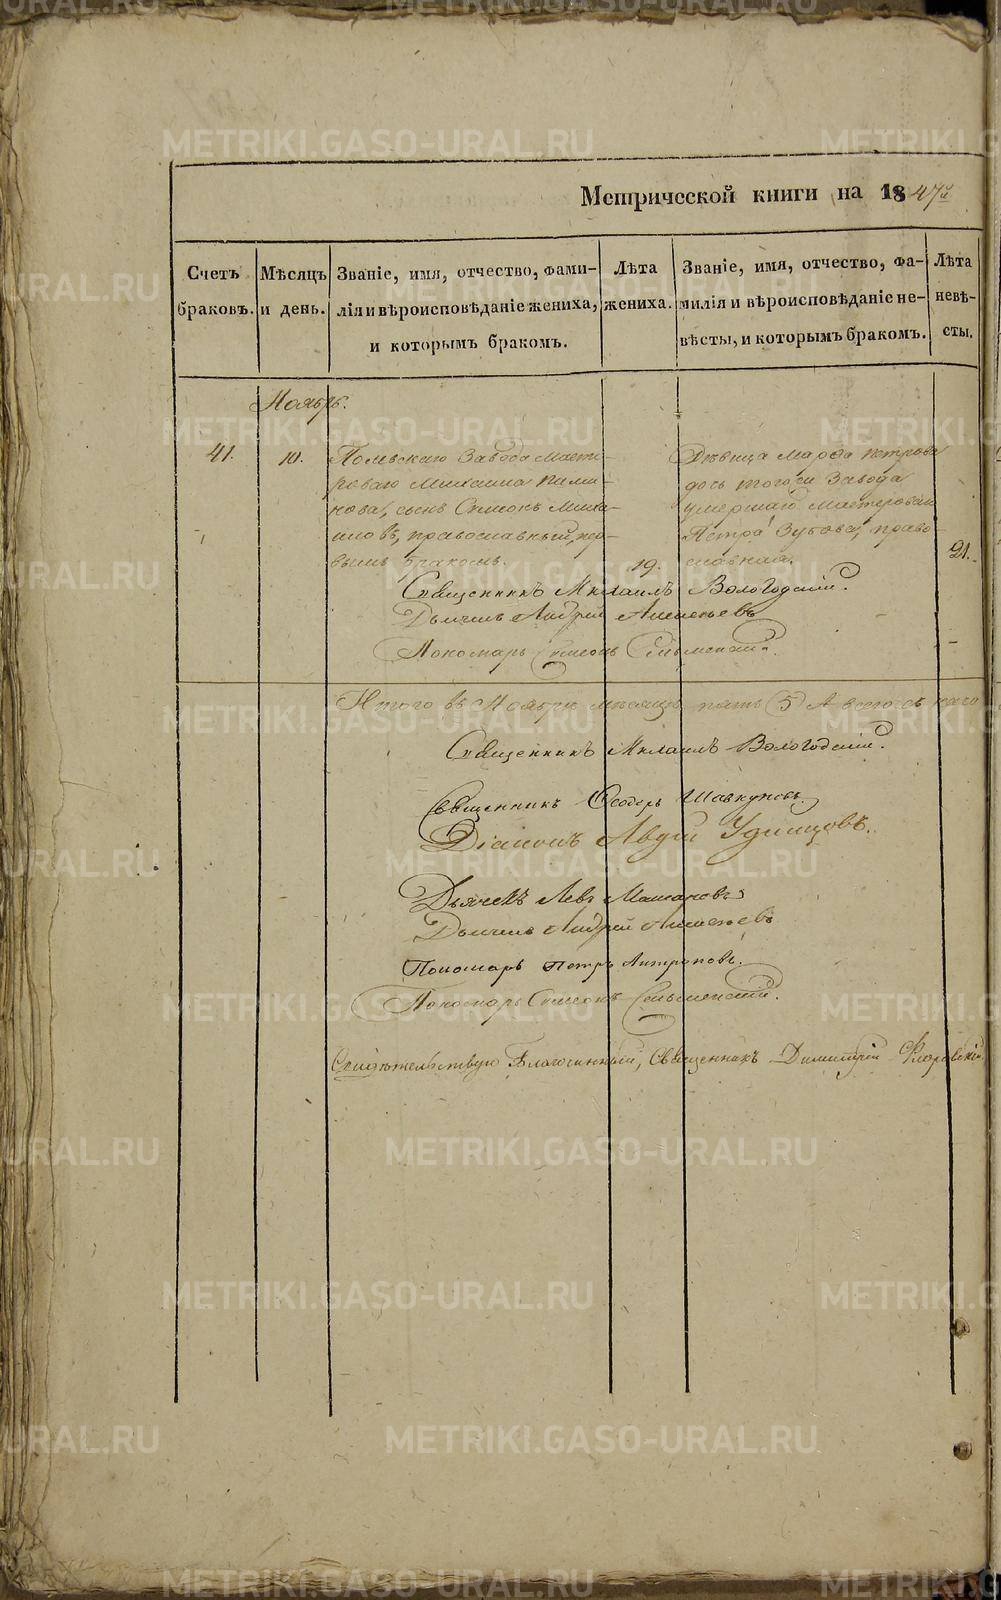 Метрической книги на 1847й
Счетъ браковъ.
Мѣсяцъ и день.
Званіе, имя, отчество, фами-
лія и вѣроисповѣданіе жениха,
и которымъ бракомъ.
Лѣта жениха.
Званіе, имя, отчество, фа-
милія и вѣроисповѣданіе не-
вѣсты, и которымъ бракомъ.
Лѣта невѣ-
сты.
Ноябрь.
41.
10.
Завода Масте-
роваго Михаила Пими-
нова, сынъ Симеонъ Миха-
иловъ, православный, пер-
вымъ бракомъ.
19.
Дѣвица Марѳа Петрова
дочь тогоже Завода
умершаго Мастероваго
Петра Зубова, право-
славная.
21.
Священникъ Михаилъ Вологодскій.
Дьячекъ Андрей
Пономарь Симеонъ
Итого въ Ноябрѣ мѣсяцѣ пять (5) А всего съ
Священникъ Михаилъ Вологодскій.
Священникъ Ѳеодоръ Шавкуновъ.
Діаконъ Авдій Удинцовъ.
Дьячекъ Левъ
Дьячекъ Андрей
Пономарь Петръ Антроповъ.
Пономарь Симеонъ
Свидѣтельствую Благочинный, Священникъ Димитрій Флоровскій
METRIKI.GASO-URAL.RU